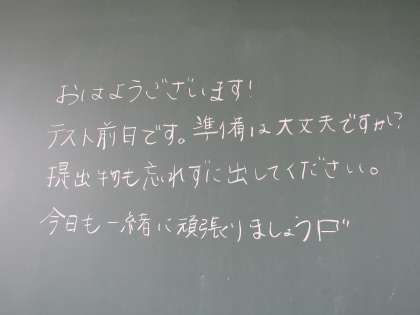 おはようございます!
テスト前日です。準備は大丈夫ですか?
提出物も忘れずに出してください。
今日も一緒に頑張りましょう